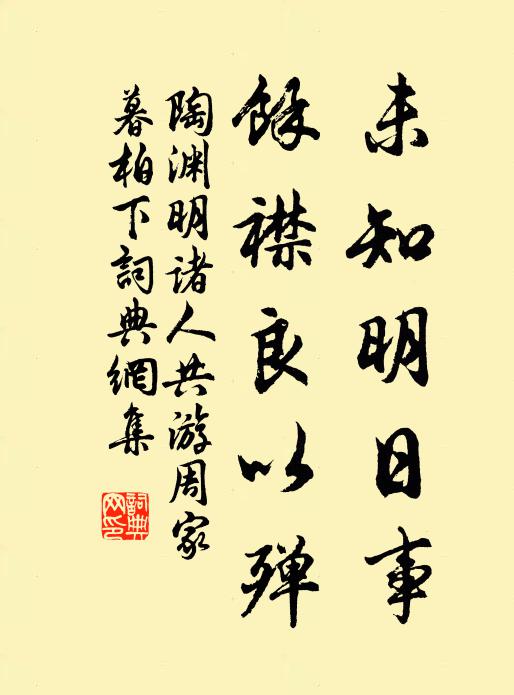 未知明日事
餘襟良以殫
陶渊明诸人共游周家
暮柏下詞典網集
詞典网印